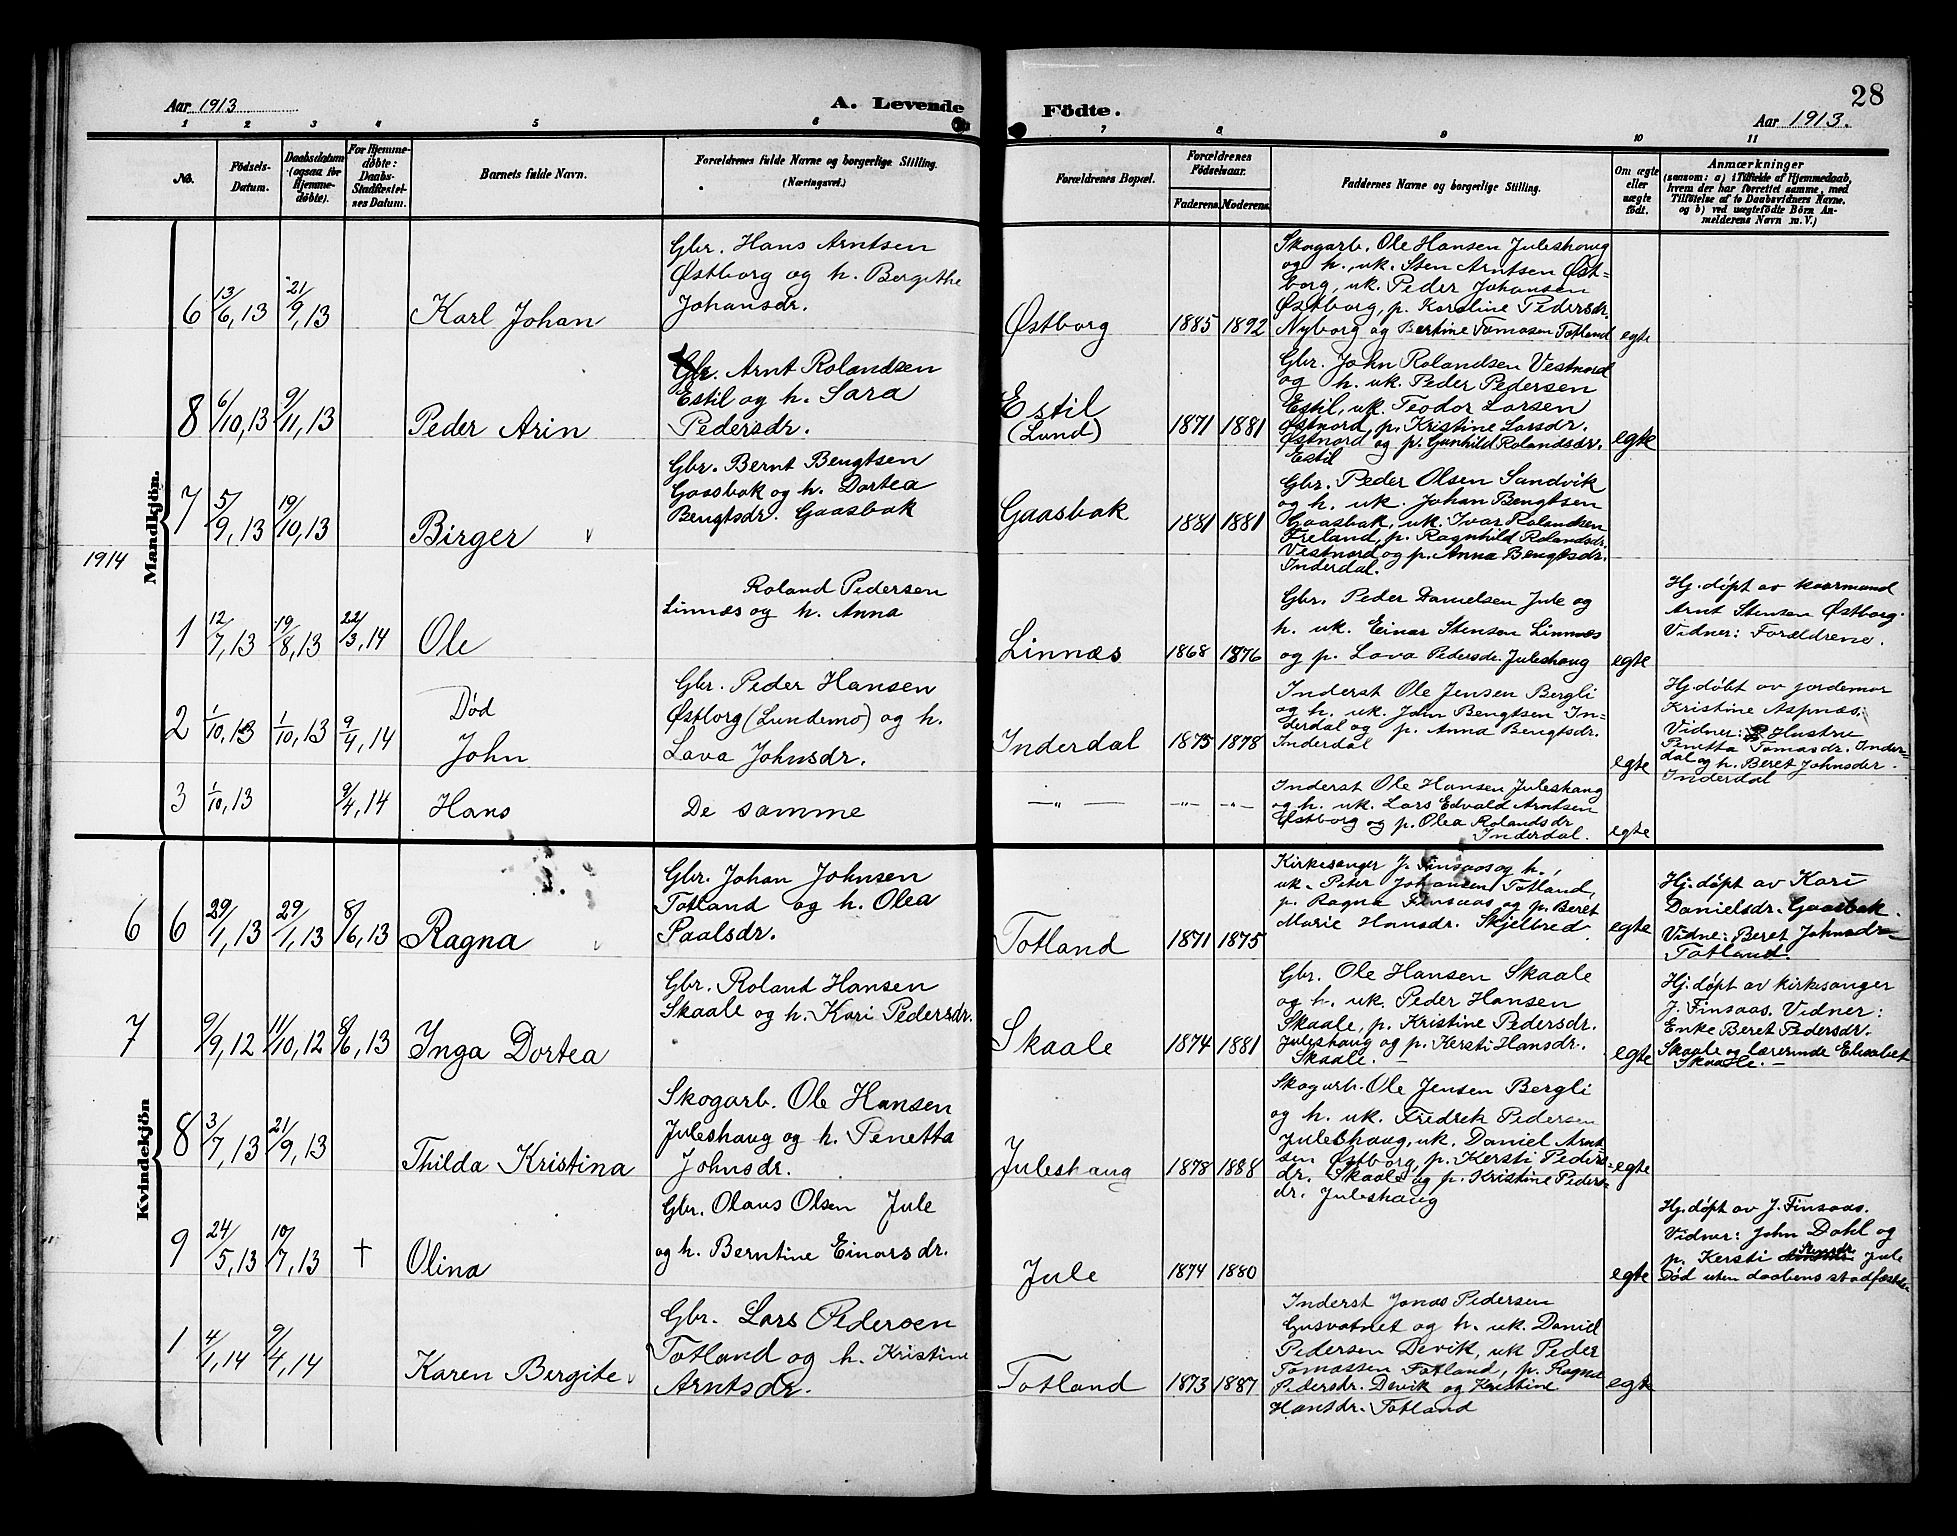 Aar 1913
A. Levende
1 2 3 4 5 6
No.
Fødsels-
Datum.
Daabsdatum
(ogsaa for
Hjemme-
døbte).
For Hjemme-
døbte:
Daabs-
Stadfæstel-
ses Datum.
Barnets fulde Navn.
Forældrenes fulde Navne og borgerlige Stilling.
(Næringsvei.)
Mandkjøn.
6 13/6, 13 21/9, 13 Karl Johan
Gbr. Hans Arntsen
Østborg og h. Bergithe
Johansdr.
8 6/10, 13 9/11, 13 Peder Arin
Gbr. Arnt Rolandsen
Estil og h. Sara
Pedersdr.
7 5/9, 13 19/10, 13 Birger
Gbr. Bernt Bengtsen
Gaasbak og h. Dortea
Bengtsdr. Gaasbak
1914
1 12/7, 13 19/8, 13 22/3, 14 Ole
Roland Pedersen
Linnæs og h. Anna
2 1/10, 13 1/10, 13 9/4, 14 Død
John
Gbr. Peder Hansen
Østborg (Lundemo) og h.
Lava Johnsdr.
3 1/10, 13 9/4, 14 Hans
De samme
Kvindekjön
6 6 29/1, 13 29/1, 13 8/6, 13 Ragna
Gbr. Johan Johnsen
Totland og h. Olea
Paalsdr.
7 9/9, 12 11/10, 12 8/6, 13 Inga Dortea
Gbr. Roland Hansen
Skaale og h. Kari Pedersdr.
8 3/7, 13 21/9, 13 Thilda Kristina
Skogarb. Ole Hansen
Juleshaug og h. Penetta
Johnsdr.
9 24/5, 13 10/7, 13 † Olina
Gbr. Olaus Olsen Jule
og h. Berntine Einarsdr.
1 4/1, 14 9/4, 14 Karen Bergite
Gbr. Lars Pedersen
Totland og h. Kristine
Arntsdr.
Födte.
28
Aar 1913.
7 8 9 10 11
Forældrenes Bopæl.
Forældrenes
Födselsaar.
Faderens. Moderens.
Faddernes Navne og borgerlige Stilling.
Om ægte
eller
uægte
födt.
Anmærkninger
(saasom: a) i Tilfælde af Hjemmedaab,
hvem der har forrettet samme, med
Tilföielse af to Daabsvidners Navne,
og b) ved uægtefödte Börn An-
melderens Navn m. V.)
Østborg 1885 1892
Skogarb. Ole Hansen Juleshaug
og h., uk. Sten Arntsen Øst-
borg, uk. Peder Johansen
Østborg, p. Karoline Pedersdr.
Nyborg og Bertine Tomasen Totland
egte
Estil
(Lund) 1871 1881
Gbr. John Rolandsen Vestnord
og h. uk. Peder Pedersen
Estil, uk. Teodor Larsen
Østnord, p. Kristine Larsdr.
Østnord og p. Gunhild Rolandsdr.
Estil
egte
Gaasbak 1881 1881
Gbr. Peder Olsen Sandvik
og h. uk. Johan Bengtsen
Gaasbak, uk. Ivar Rolandsen
Freland, p. Ragnhild Rolandsdr.
Vestnord og p. Anna Bengtsdr.
Inderdal.
Linnæs 1868 1876
Gbr. Peder Danielsen Jule og
h. uk. Einar Stensen Linnæs
og p. Lava Pedersdr. Juleshaug
egte
Hj. døpt av kaarmand
Arnt Stensen Østborg.
Vidner: Forældrene.
Inderdal 1875 1878
Inderst Ole Jensen Bergli
og h. uk. John Bengtsen In-
derdal og p. Anna Bengtsdr.
Inderdal
egte
Hj. døbt av jordemor
Kristine Aspnæs.
Vidner: Hustru
Penetta Tomasdr. Inder-
dal og h. Beret Johnsder.
Inderdal
—"— —"— —"—
Inderst Ole Hansen Juleshaug
og h. uk. Lars Edvald Arntsen
Østborg og p. Olea Rolandsdr
Inderdal.
egte
Totland 1871 1875
Kirkesanger J. Finsaas og h.,
uk. Peter Johansen Totland,
p. Ragna Finsaas og p. Beret
Marie Hansdr. Skjelbred
egte
Hj. døpt av Kari
Danielsdr. Gaasbak.
Vidne: Beret Johnsdr
Totland.
Skaale 1874 1881
Gbr. Ole Hansen Skaale
og h. uk. Peder Hansen
Skaale, p. Kristine Pedersdr.
Juleshaug og p. Kersti Hansdr.
Skaale.
egte
Hj. døpt av kirkesanger
J. Finsaas. Vidner:
Enke Beret Pedersdr.
Skaale og lærerinde Elisabet
Skaale. —
Juleshaug 1878 1888
Skogarb. Ole Jensen Bergli
og h. uk. Fredrek Pedersen
Juleshaug, uk. Daniel Arnt
sen Østborg, p. Kersti Peders-
dr. Skaale og p. Kristine Peders-
dr. Juleshaug
egte
Jule 1874 1880
egte
Hj. døpt av J. Finsaas.
Vidner: John Dahl og
p. Kersti Stensdr. Jule
Død uten daabens stadfæstelse
Totland 1873 1887
Inderst Jonas Pedersen
Gusvatnet og h. uk. Daniel
Pedersen Devik, uk Peder
Tomassen Totland, p. Ragna
Pedersdr. Devik og Kristine
Hansdr. Totland
egte